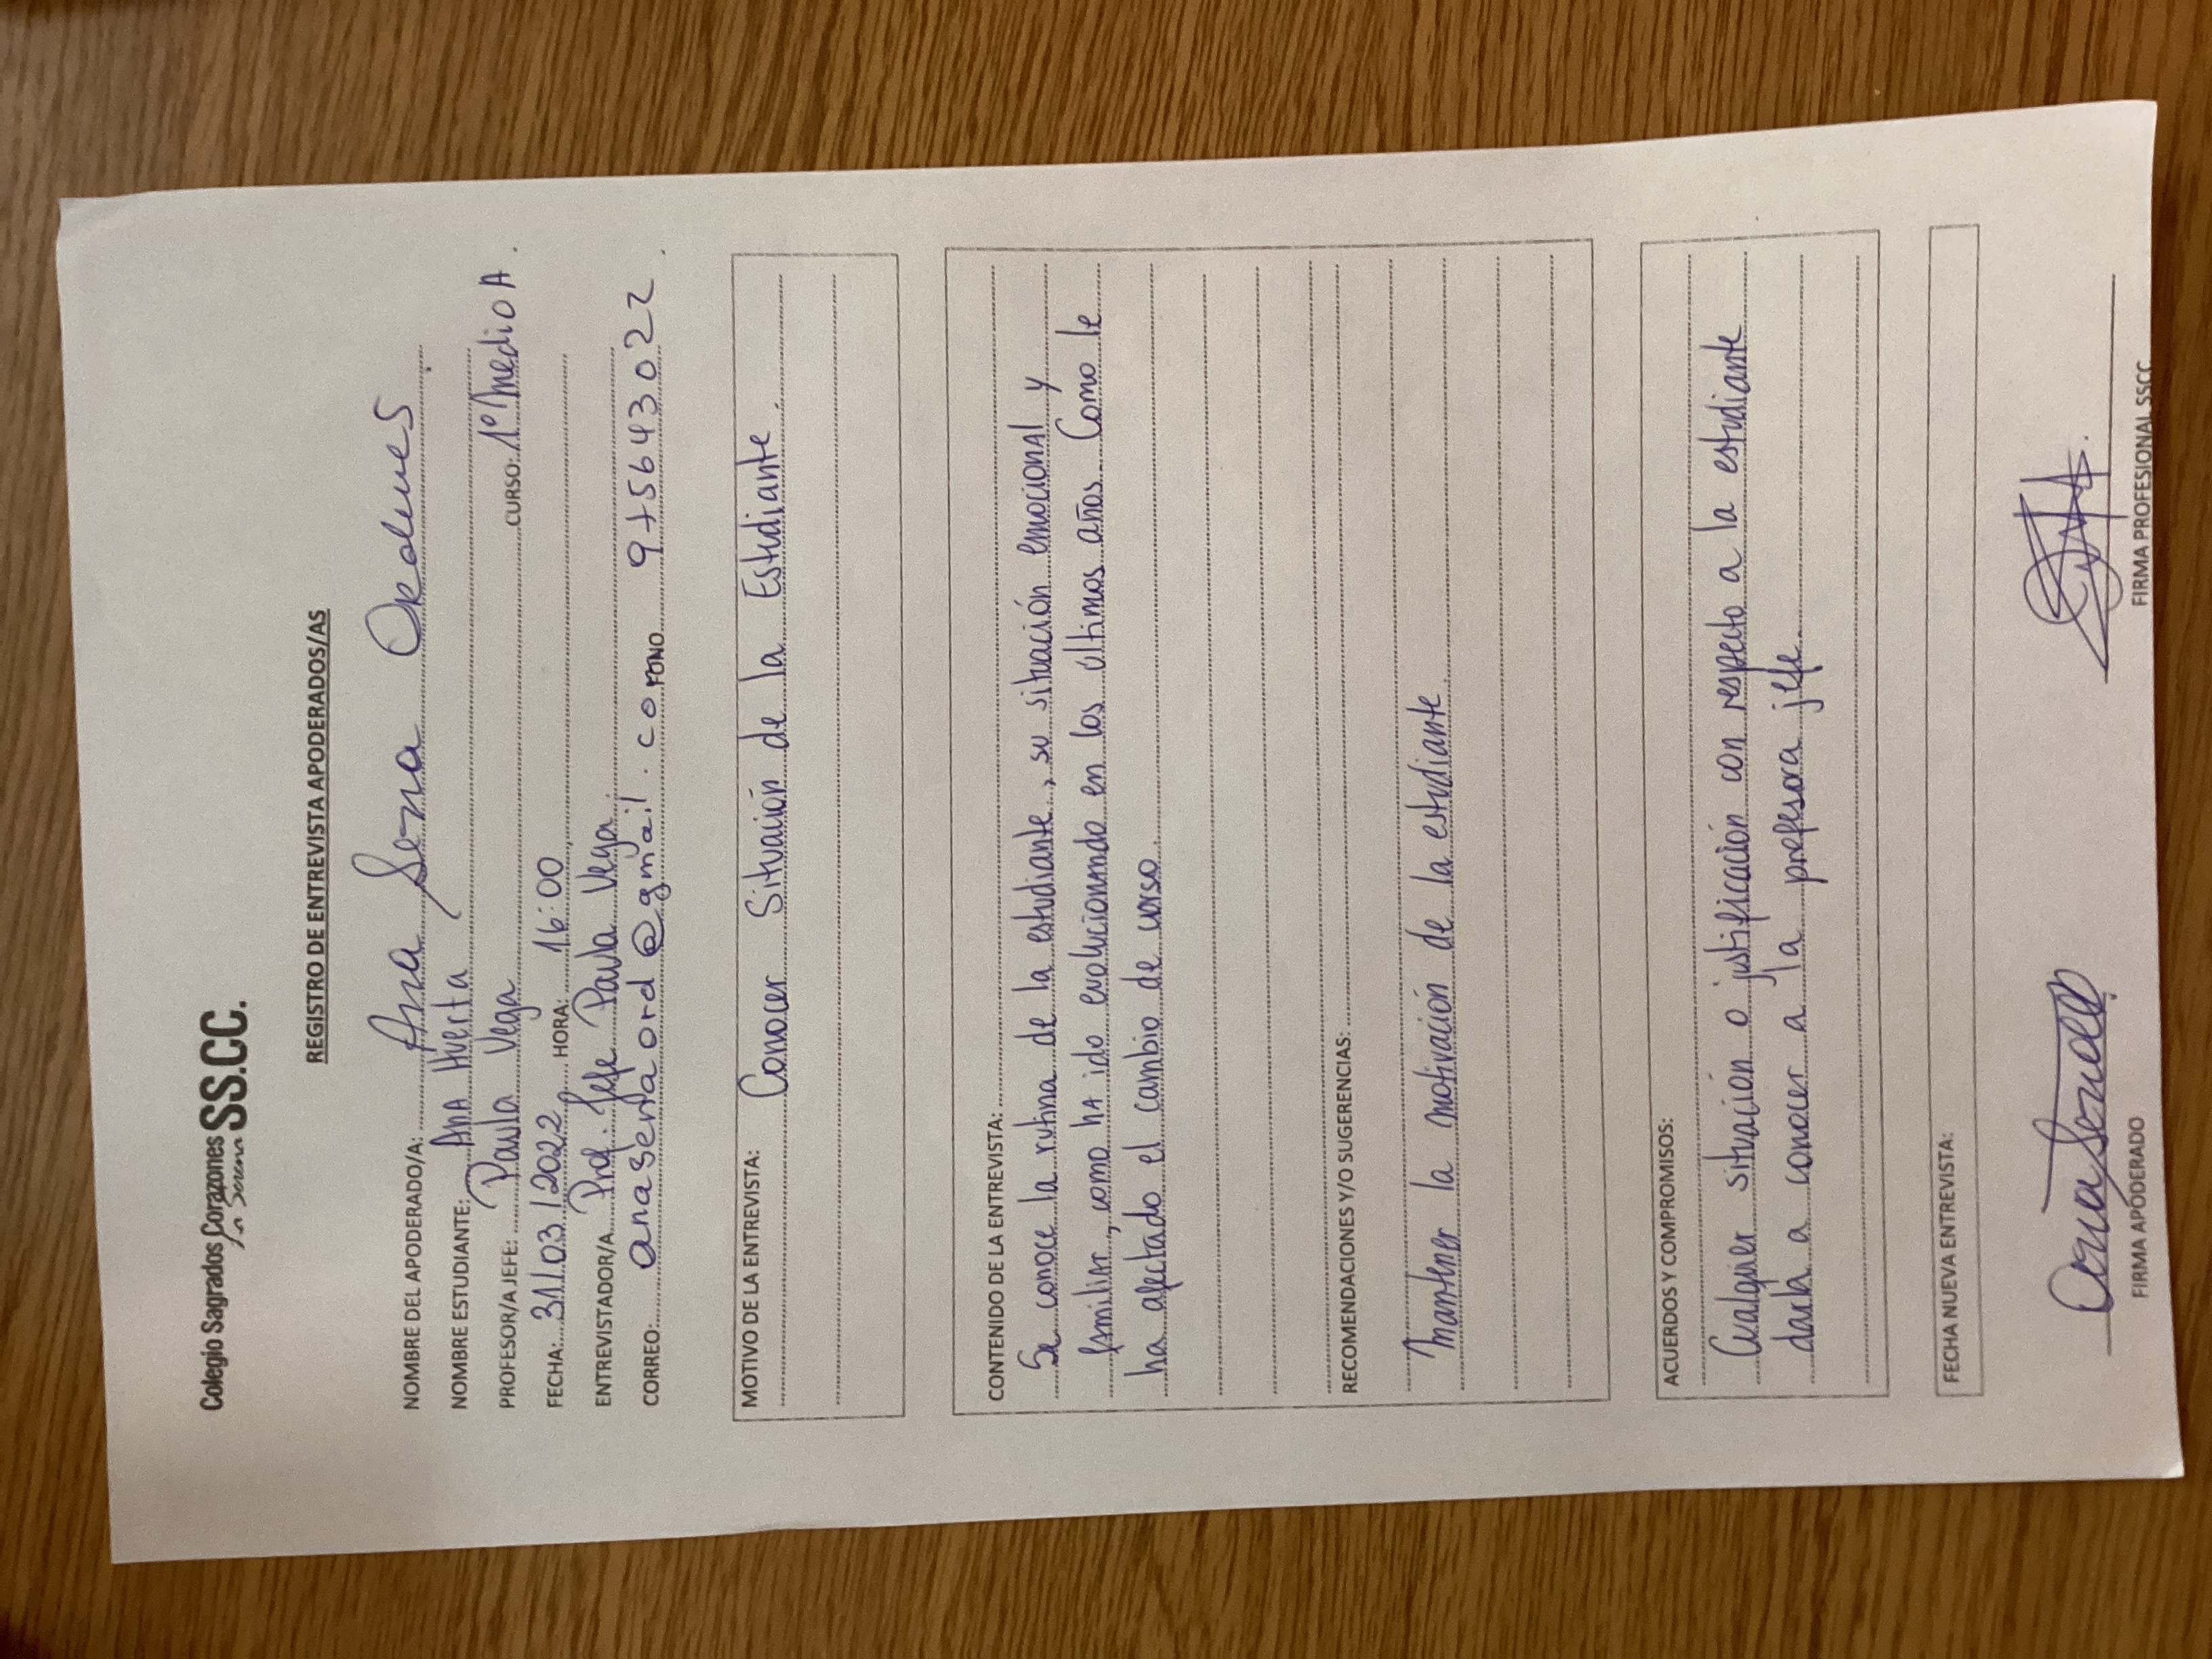 Colegio Sagrados Corazones SS.CC.
La Serena
REGISTRO DE ENTREVISTA APODERADOS/AS
NOMBRE DEL APODERADO/A: Ana Serna
NOMBRE ESTUDIANTE: Ana Huerta
PROFESOR/A JEFE: Paula Vega CURSO: 1º Medio A.
FECHA: 31/03/2022 HORA: 16:00
ENTREVISTADOR/A Prof. Jefe Paula Vega.
CORREO: @gmail.com FONO 975643022
MOTIVO DE LA ENTREVISTA: Conocer Situación de la Estudiante.
CONTENIDO DE LA ENTREVISTA:
Se conoce la rutina de la estudiante, su situación emocional y
familiar, como ha ido evolucionando en los últimos años. Como le
ha afectado el cambio de curso.
RECOMENDACIONES Y/O SUGERENCIAS:
Mantener la motivación de la estudiante.
ACUERDOS Y COMPROMISOS:
Cualquier situación o justificación con respecto a la estudiante
darla a conocer a la profesora jefe.
FECHA NUEVA ENTREVISTA:
FIRMA APODERADO FIRMA PROFESIONAL SSCC